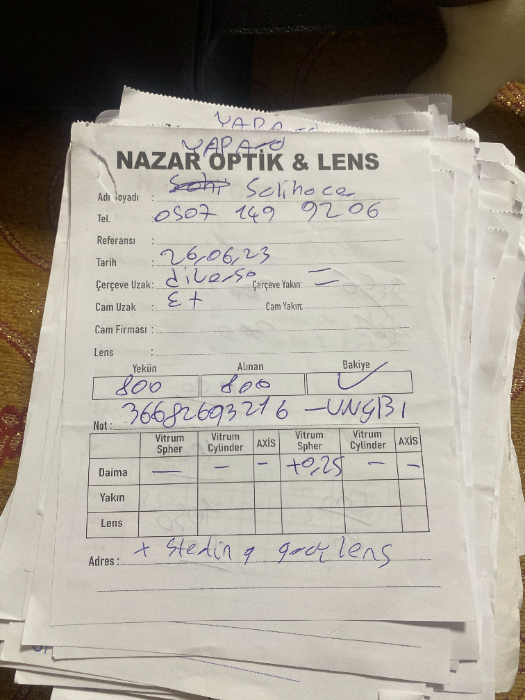 YAPA
YAPA
NAZAR OPTİK & LENS
Adı Soyadı : Salihoca
Tel. 0507 149 9206
Referansı :
Tarih : 26,06,23
Çerçeve Uzak: diverso Çerçeve Yakın: =
Cam Uzak : Cam Yakın:
Cam Firması :
Lens :
Yekün Alınan Bakiye
800 800 ✓
Not : 36682693216 - UNGIBI
Vitrum Spher Vitrum Cylinder AXİS Vitrum Spher Vitrum Cylinder AXİS
Daima — — — +0,25 — —
Yakın
Lens
Adres : lens